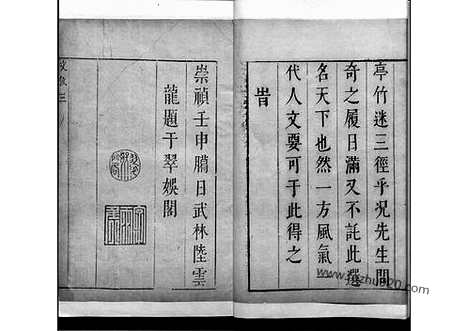 亭竹迷三徑乎况先生問
奇之履日滿又不託此選
名天下也然一方風氣一
代人文要可于此得之
旹
崇禎壬申臈日武林陸雲
龍題于翠娛閣